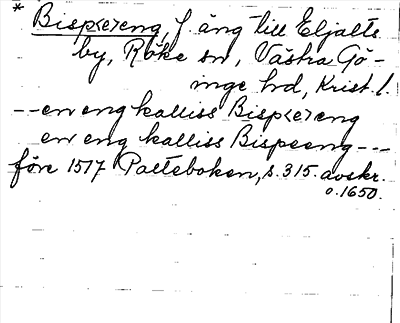 * Bisp<e>eng, f. äng till Eljalts
by, Röke sn, Västra Gö-
inge hd, Krist. l.
--en eng kalliss Bisp<e>eng
en eng kalliss Bispeeng---
före 1517 Palteboken, s. 315. avskr.
o. 1650.